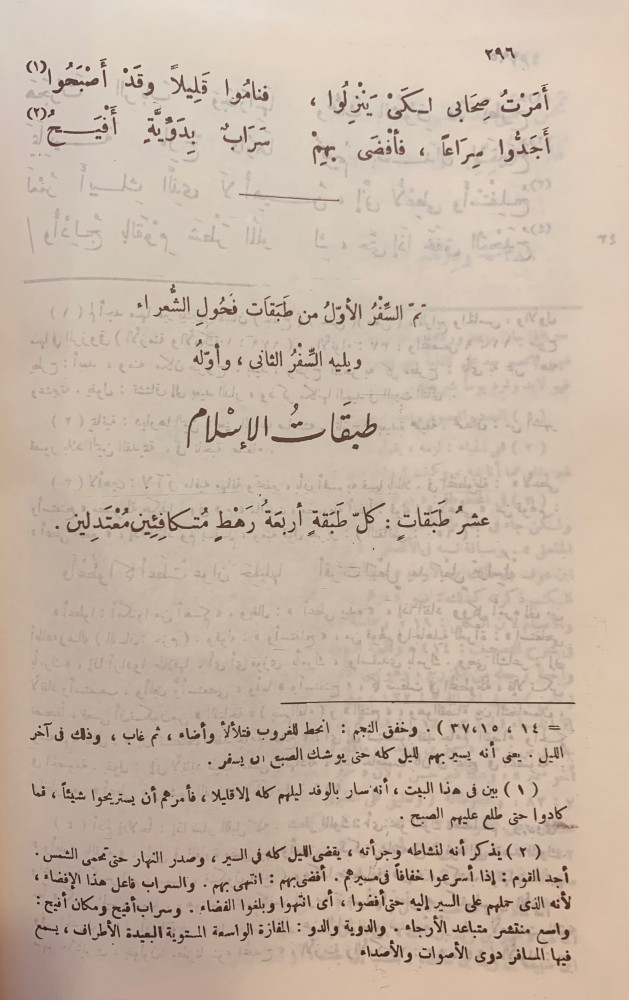 ٢٩٦
أَمَرْتُ صِحَابى لـكَىْ يَنْزِلُوا ، فنامُوا قَلِيلاً وقَدْ أَصْبَحُوا (١)
أَجَدُّوا سِرَاعاً ، فأفْضَى بِهِمْ سَرَابٌ بِدَوِّيَّةٍ أَفْيَـــحُ (٢)
تمّ السِّفْرُ الأوّلُ من طَبَقَات فَحُولِ الشُّعراء
ويليه السِّفْرُ الثانى ، وأوّلُه
طبقَاتُ الإسْلام
عشرُ طَبَقاتٍ : كلّ طَبَقةٍ أربعَةُ رَهْطٍ مُتكافِئِين مُعْتَدِلين .
= ١٤ ، ١٥، ٣٧ ) . وخفق النجم : انحط للغروب فتلألأ وأضاء ، ثم غاب ، وذلك فى آخر
الليل . يعنى أنه يسير بهم لليل كله حتى يوشك الصبح ان يسفر .
( ١ ) بين فى هذا البيت ، أنه سار بالوفد ليلهم كله إلا قليلا ، فأمرهم أن يستريحوا شيئاً ، فما
كادوا حتى طلع عليهم الصبح .
( ٢ ) يذكر أنه لنشاطه وجرأته ، يقضى الليل كله فى السير ، وصدر النهار حتى تحمى الشمس .
أجد القوم : إذا أسرعوا خفافاً فى مسيرهم . أفضى بهم : انتهى بهم . والسراب فاعل هذا الإفضاء ،
لأنه الذى حملهم على السير إليه حتى أفضوا ، أى انتهوا وبلغوا الفضاء . وسراب أفيح ومكان أفيح :
واسع منتشر متباعد الأرجاء . والدوية والدو : المفازة الواسعة المستوية البعيدة الأطراف ، يسمع
فيها المسافر دوى الأصوات والأصداء